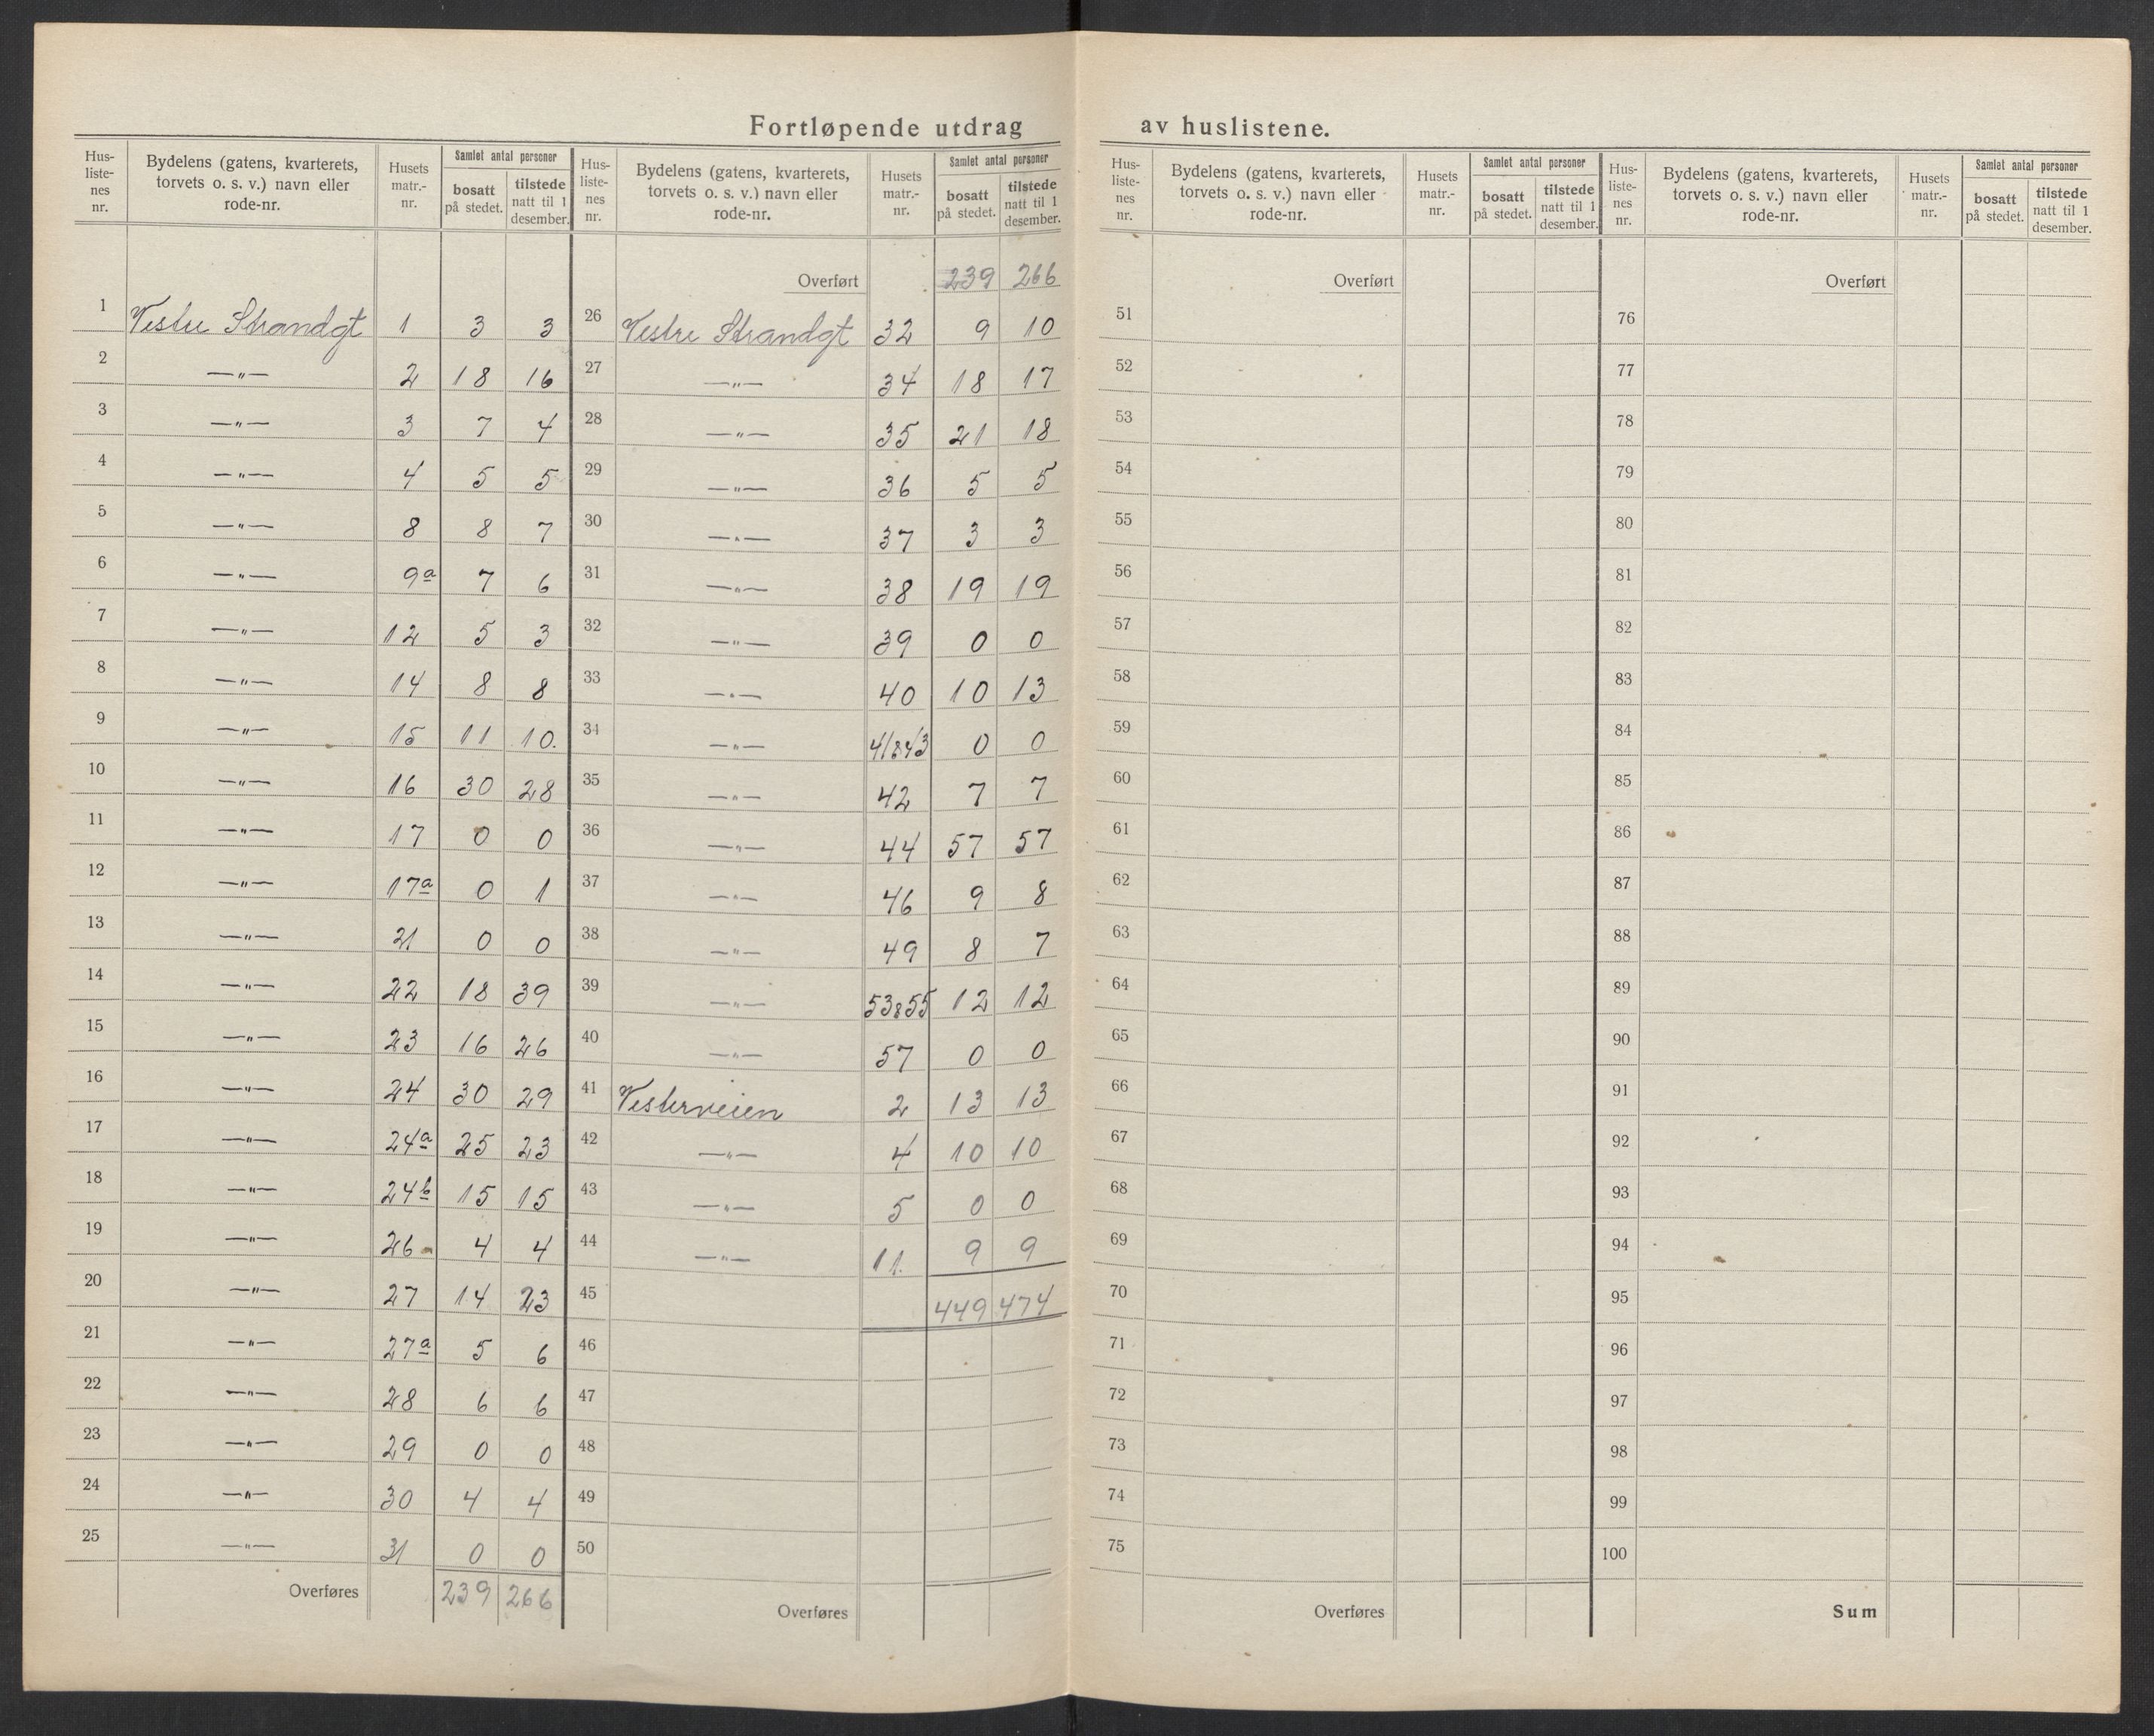 Fortløpende utdrag av huslistene.
Hus-liste-nes nr. | Bydelens (gatens, kvarterets, torvets o. s. v.) navn eller rode-nr. | Husets matr.-nr. | Samlet antal personer bosatt på stedet. | tilstede natt til 1 desember.
1 Vestre Strandgt 1 3 3
2 —"— 2 18 16
3 —"— 3 7 4
4 —"— 4 5 5
5 —"— 8 8 7
6 —"— 9a 7 6
7 —"— 12 5 3
8 —"— 14 8 8
9 —"— 15 11 10.
10 —"— 16 30 28
11 —"— 17 0 0
12 —"— 17a 0 1
13 —"— 21 0 0
14 —"— 22 18 39
15 —"— 23 16 26
16 —"— 24 30 29
17 —"— 24a 25 23
18 —"— 24b 15 15
19 —"— 26 4 4
20 —"— 27 14 23
21 —"— 27a 5 6
22 —"— 28 6 6
23 —"— 29 0 0
24 —"— 30 4 4
25 —"— 31 0 0
Overføres 239 266
Hus-liste-nes nr. | Bydelens (gatens, kvarterets, torvets o. s. v.) navn eller rode-nr. | Husets matr.-nr. | Samlet antal personer bosatt på stedet. | tilstede natt til 1 desember.
Overført 239 266
26 Vestre Strandgt 32 9 10
27 —"— 34 18 17
28 —"— 35 21 18
29 —"— 36 5 5
30 —"— 37 3 3
31 —"— 38 19 19
32 —"— 39 0 0
33 —"— 40 10 13
34 —"— 41&43 0 0
35 —"— 42 7 7
36 —"— 44 57 57
37 —"— 46 9 8
38 —"— 49 8 7
39 —"— 53&55 12 12
40 —"— 57 0 0
41 Vesterveien 2 13 13
42 —"— 4 10 10
43 —"— 5 0 0
44 —"— 11. 9 9
45 449 474
46
47
48
49
50
Overføres
Hus-liste-nes nr. | Bydelens (gatens, kvarterets, torvets o. s. v.) navn eller rode-nr. | Husets matr.-nr. | Samlet antal personer bosatt på stedet. | tilstede natt til 1 desember.
Overført
51
52
53
54
55
56
57
58
59
60
61
62
63
64
65
66
67
68
69
70
71
72
73
74
75
Overføres
Hus-liste-nes nr. | Bydelens (gatens, kvarterets, torvets o. s. v.) navn eller rode-nr. | Husets matr.-nr. | Samlet antal personer bosatt på stedet. | tilstede natt til 1 desember.
Overført
76
77
78
79
80
81
82
83
84
85
86
87
88
89
90
91
92
93
94
95
96
97
98
99
100
Sum